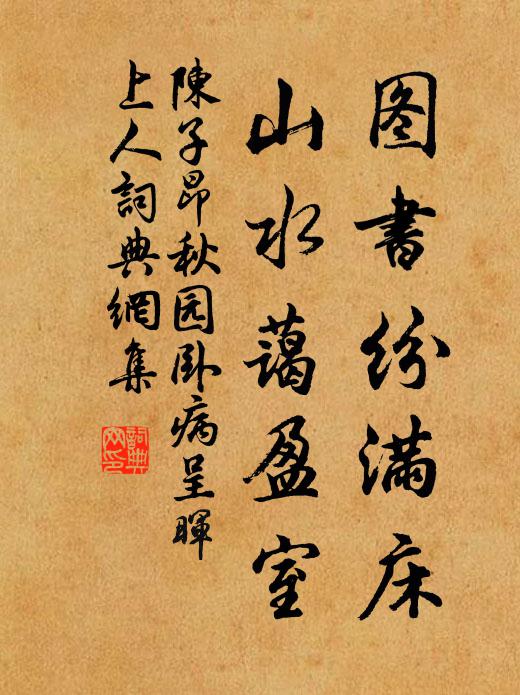 图書纷满床
山水蔼盈室
陳子昂秋园卧病呈暉
上人詞典網集
詞典網印